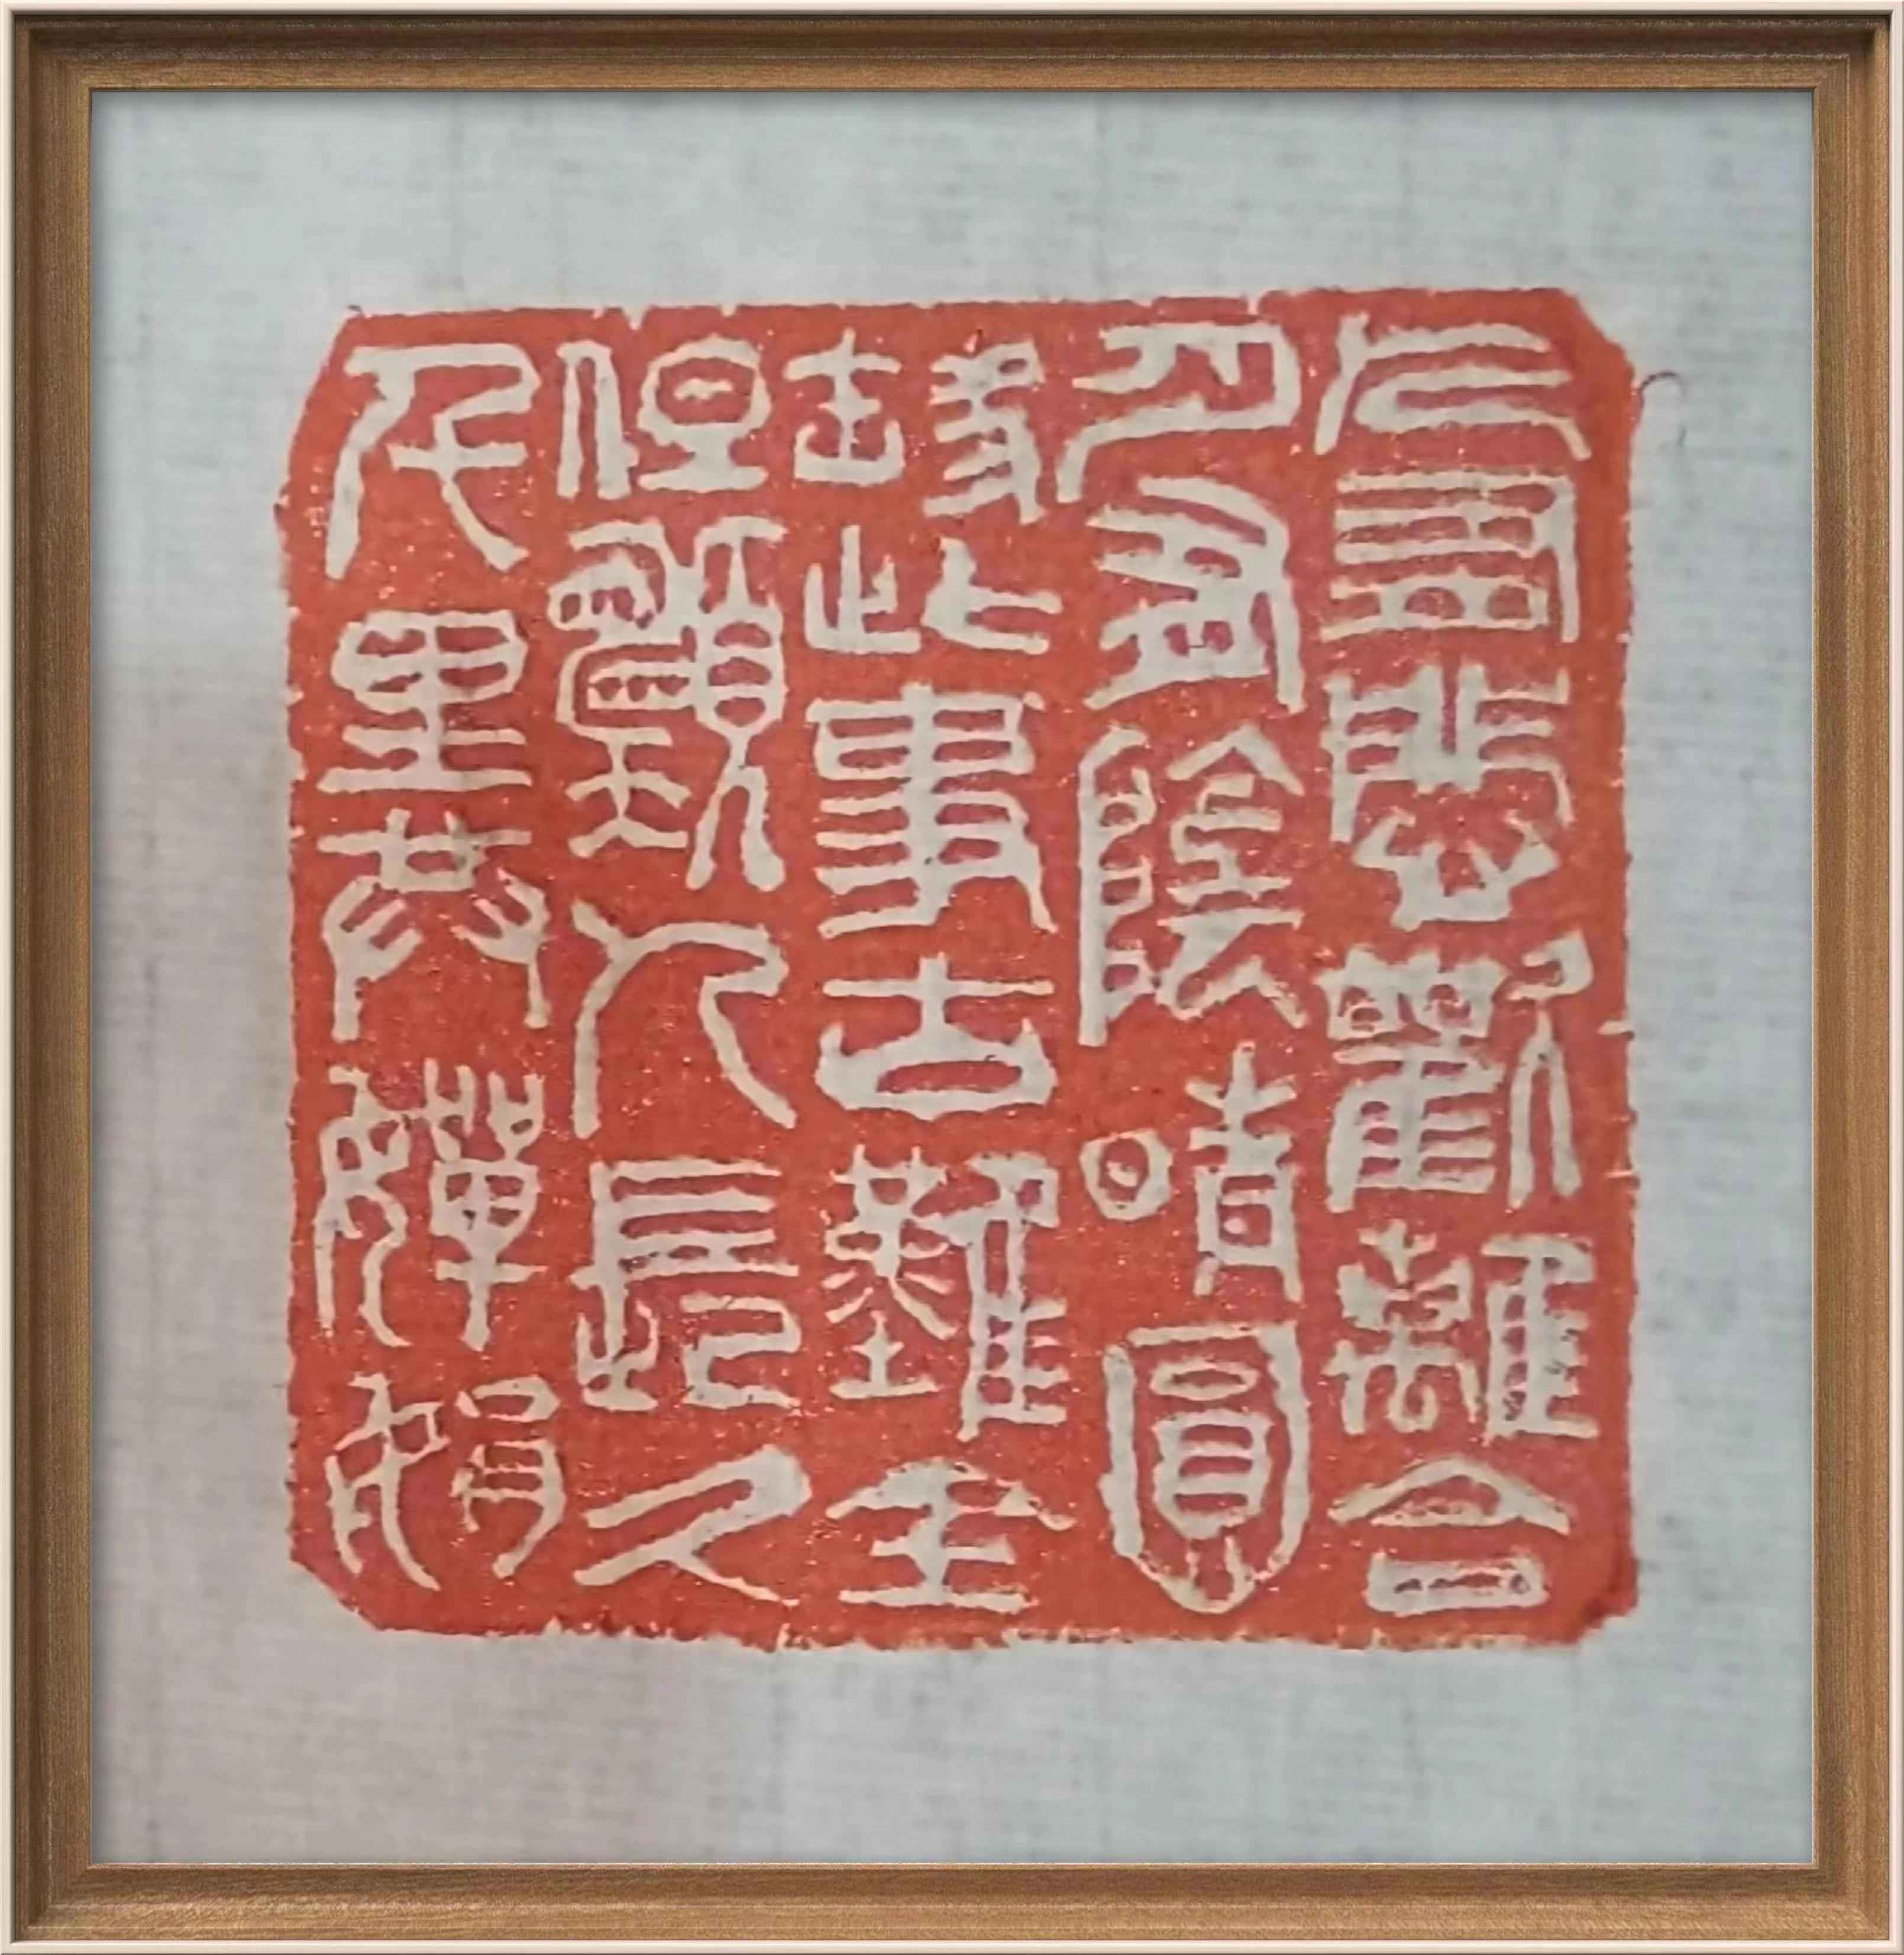 人有悲歡離合
月有陰晴圓
缺此事古難全
但願人長久
千里共嬋娟